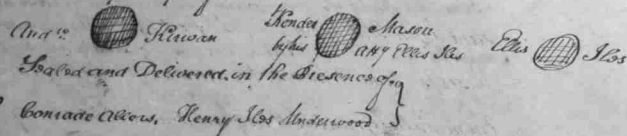 And.w Kirwan Kender Mason Ellis Iles
by his atty Ellis Iles
Sealed and Delivered in the Presence of
Conrade Alcorn, Henry Iles Underwood